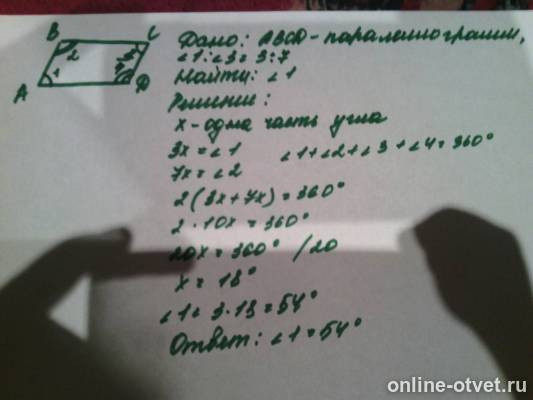 B C
2 3
1 4
A D
Дано: ABCD - параллелограмм,
∠1:∠3 = 3:7
Найти: ∠1
Решение:
x - одна часть угла
3x = ∠1 ∠1+∠2+∠3+∠4=360°
7x = ∠2
2(3x+7x)=360°
2·10x=360°
20x=360° /20
x = 18°
∠1 = 3·18=54°
Ответ: ∠1=54°
online-otvet.ru